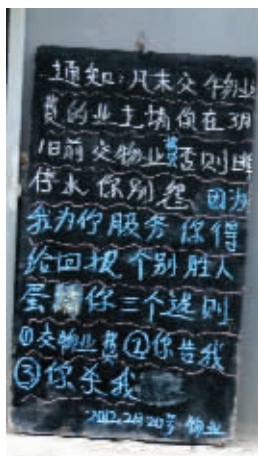 通知:凡未交物业
费的业主请你在3月
1日前交物业费否则
停水你别怨 因为
我为你服务你得
给回报个别胜人
蛋你三个选则
①交物业费②你告我
③你杀我
2012.2月20号 物业